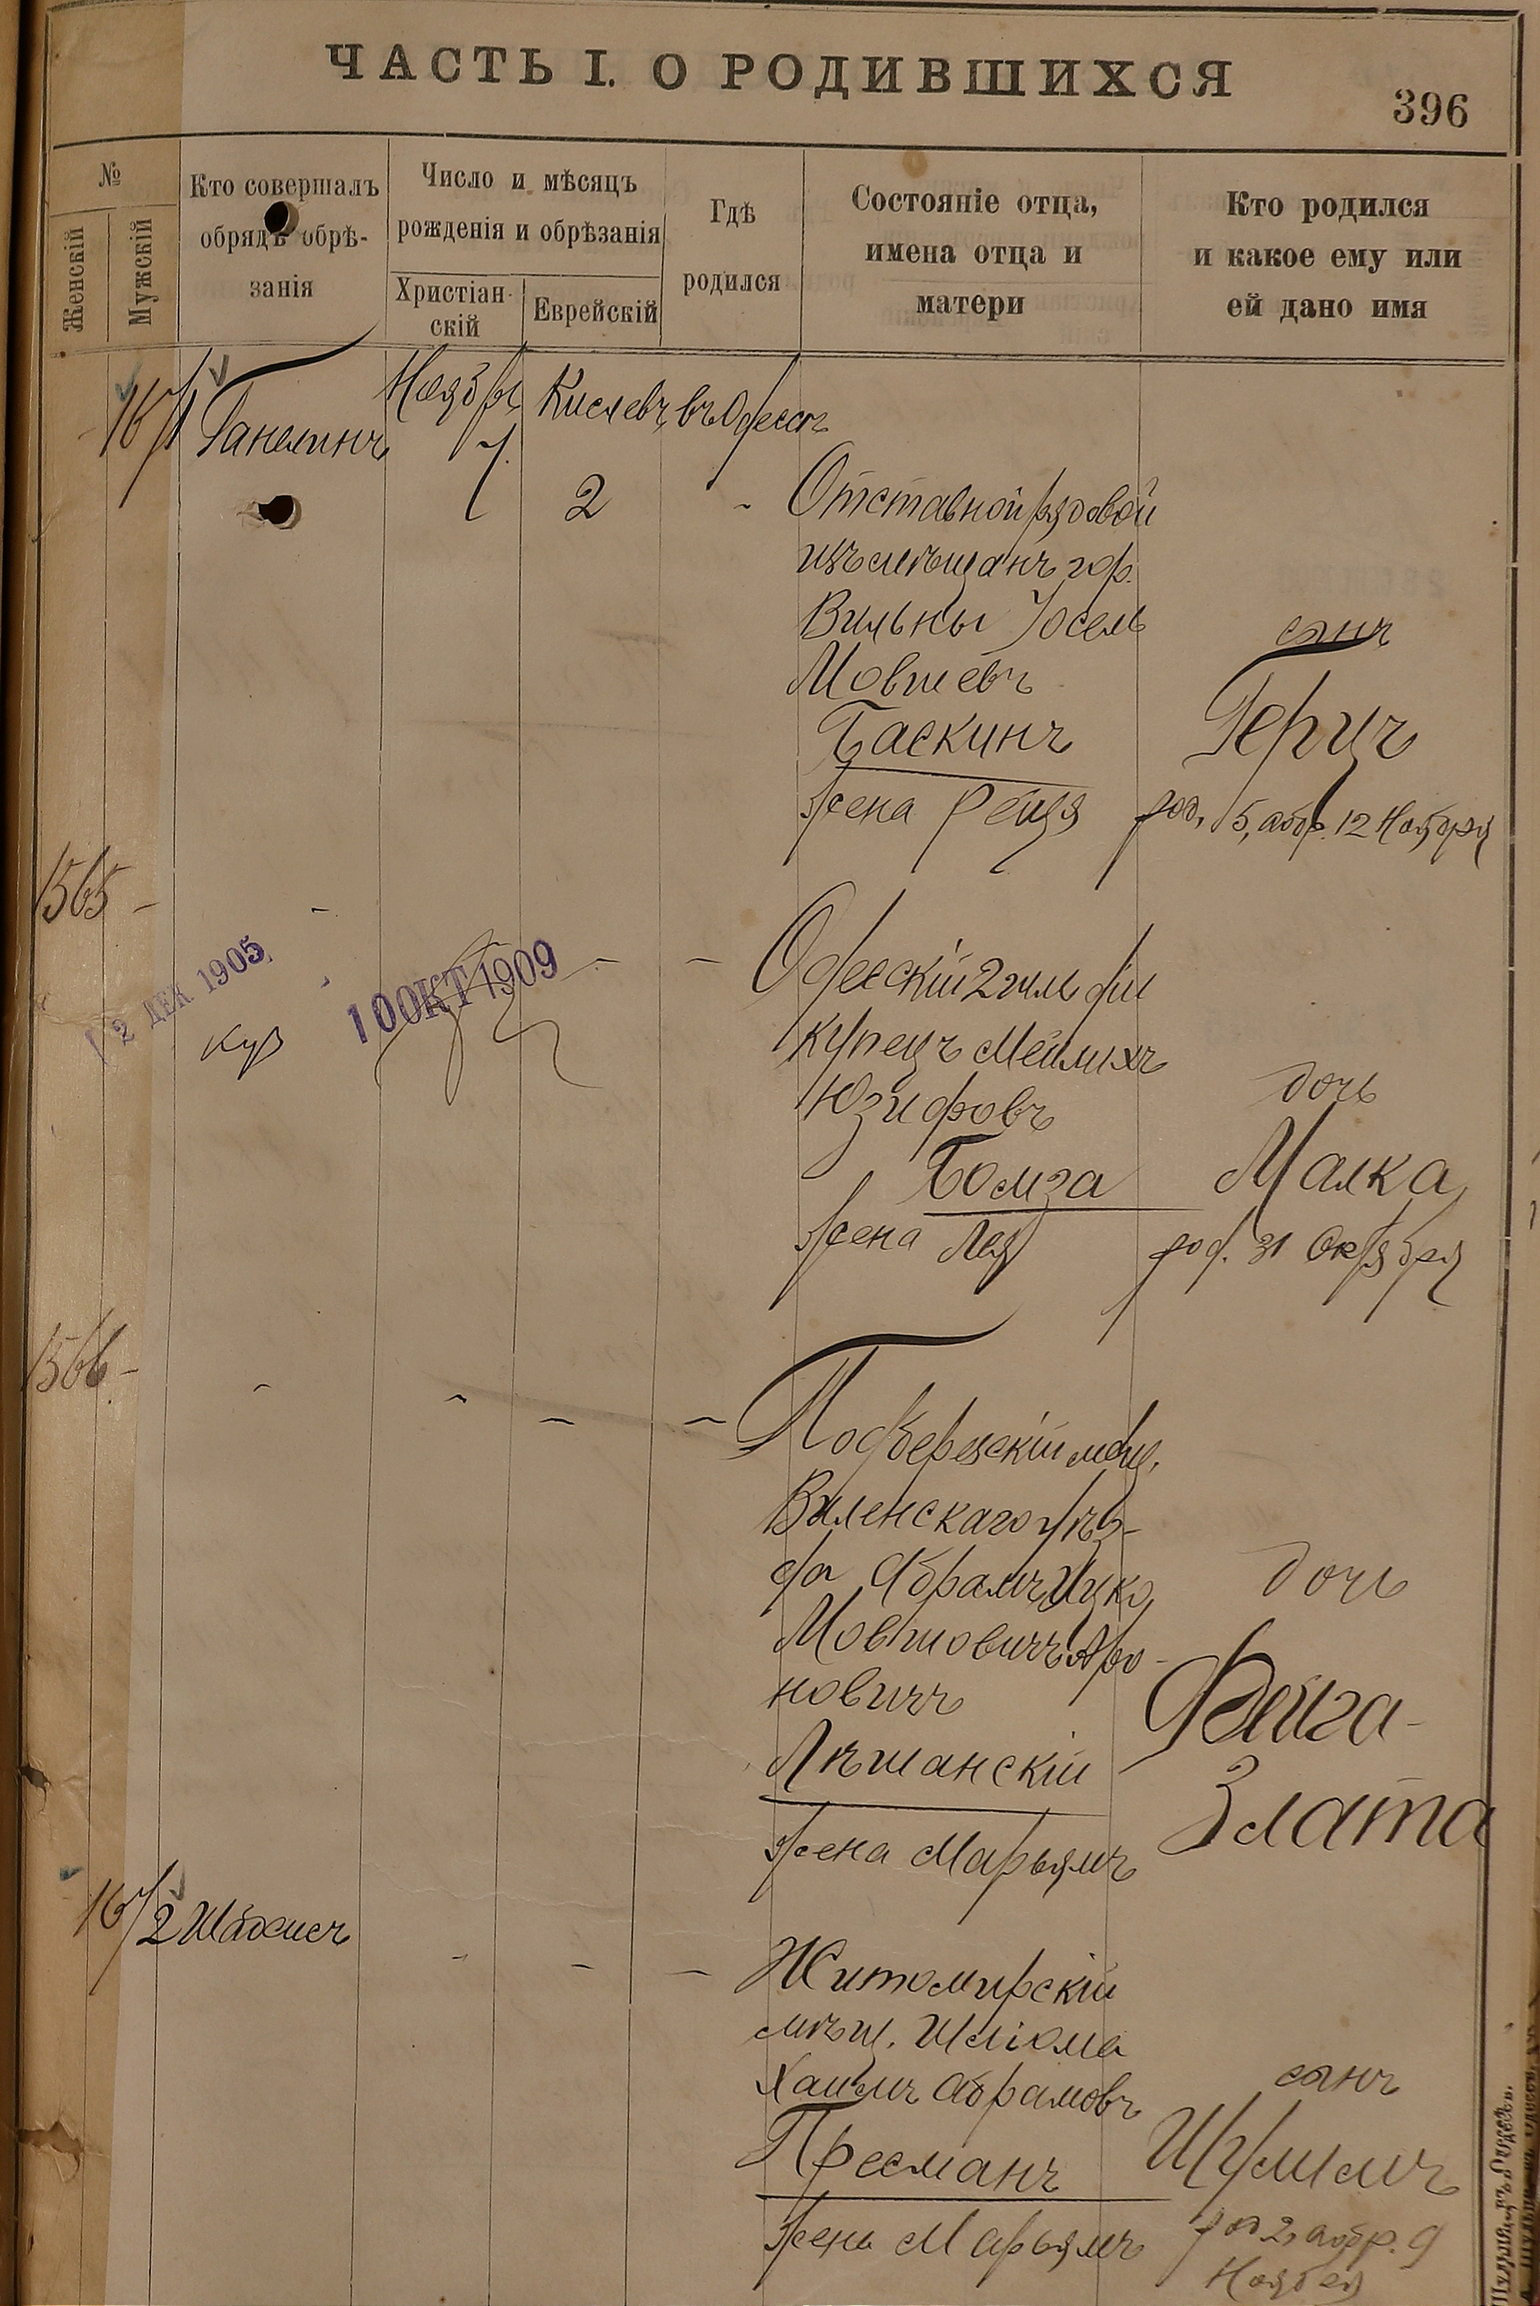 ЧАСТЬ I. О РОДИВШИХСЯ
396
№
Женскій
Мужскій
Кто совершалъ
обрядъ обрѣ-
занія
Число и мѣсяцъ
рожденія и обрѣзанія
Христіан-
скій
Еврейскій
Гдѣ
родился
Состояніе отца,
имена отца и
матери
Кто родился
и какое ему или
ей дано имя
Ноябрь Кислевъ въ Одессѣ
1671 Ганелинъ
7. 2 - Отставной рядовой
изъ мѣщанъ гор.
Вильны Іосель
Мовшевъ
Баскинъ
жена
сынъ
Герцъ
род. 5, обр. 12 Ноября
1565 -
Одесскій 2 гильдіи
купецъ Мейлихъ
Юзифовъ
Бомза
жена Лея
дочь
Малка
род. 31 Октября
2 ДЕК 1905
10 ОКТ 1909
1566 -
Подберезскій мѣщ.
Виленскаго уѣз-
да Абрамъ Ицко
Мовшовичъ Аро-
новичъ
Лѣшанскій
жена Марьямъ
дочь
Фейга-
Злата
1672
Житомирскій
мѣщ. Шліома
Хаимъ Абрамовъ
Пресманъ
жена Марьямъ
сынъ
Шумлимъ
род 2, обр. 9
Ноября